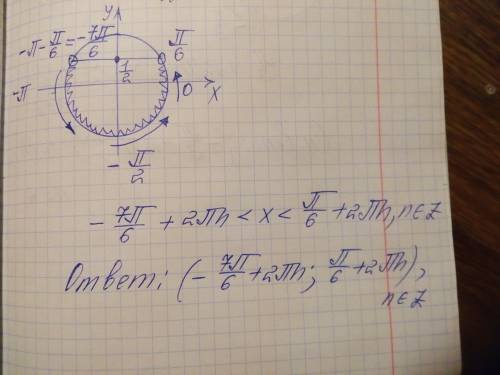 y
-π - π/6 = -7π/6
π/6
1/2
-π
0
x
-π/2
-7π/6 + 2πn < x < π/6 + 2πn, n∈Z
Ответ: (-7π/6 + 2πn; π/6 + 2πn),
n∈Z